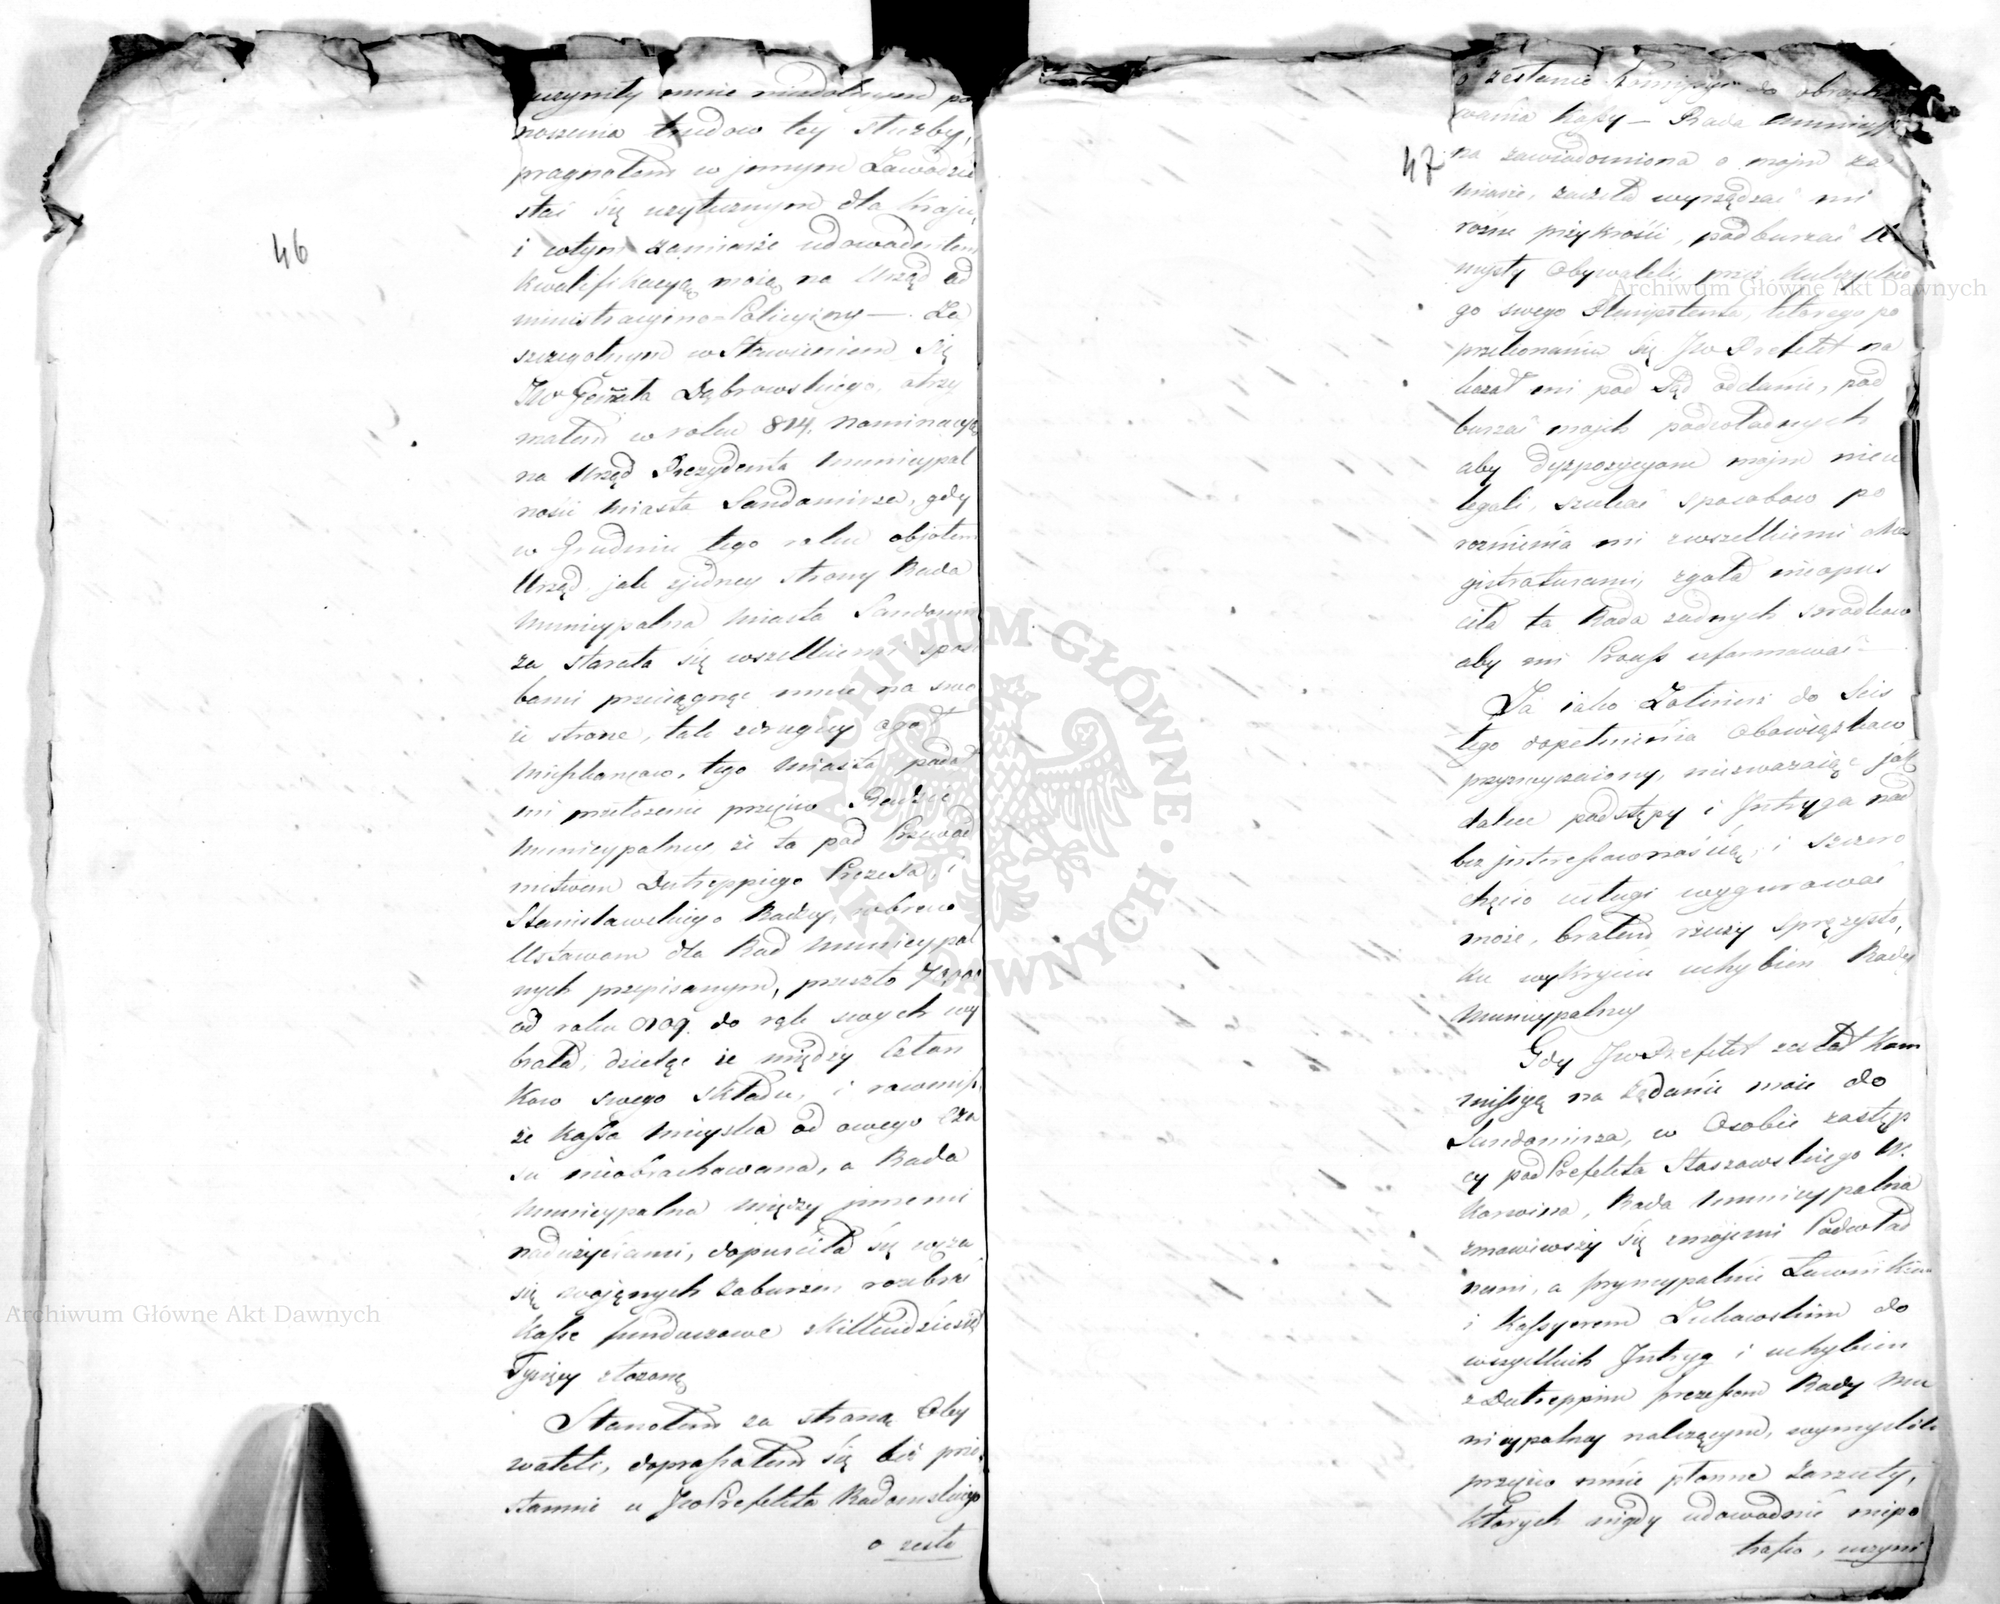 46
uczyniły mnie niezdolnym po
noszenia trudow tey służby,
pragnołem w jnnym Zawodzie
stać się użytecznym dla kraju,
i wtym zamiarze udowodniłem
kwalifikacyą moią na Urząd ad
ministracyino-Policyiny — Za
szczegolnym wstawieniem się
JW Genrała Dąbrowskiego, otrzy
małem w roku 814. Nominacyą
na Urząd Prezydenta Municypal
ności Miasta Sandomirza, gdy
w Grudniu tego roku objołem
Urząd, jak zjedney strony Rada
Municypalna Miasta Sandomir
za starała się wszelkiemi sposo
bami przeciągnąć mnie na swo
ie stronę, tak zdrugiey ogoł
Mieszkancow, tego Miasta podał
mi przełożenie przeciw Radzie
Municypalney że ta pod Przewod
nictwem Dutreppiego Prezesa, i
Stanisławskiego Radzcy, wbrew
Ustawom dla Rad Municypal
nych przepisanym, przeszło
od roku 1809. do rąk swych wy
brała, dzieląc ie między Człon
kow swego składu, i rownież
że Kassa Mieyska od owego Cza
su nieobrachowana, a Rada
Municypalna między jnnemi
nadużyciami, dopusciła się wcza
się woięnnych zaburzen rozebrać
Kasse funduszowe zkilkudziesiąt
Tysięcy złożoną
Stanołem za stroną Oby
wateli, dopraszałem się
u JWoPrefekta Radomskiego
o zesła
47
o zesłanie Kommissyi do obracho
wania Kassy — Rada Municypal
na zawiadomiona o mojm za
miarze, zaczeła wyrządzać mi
rożne przykrości, podburzać
Obywateli, przez
go swego Plenipotenta, ktorego po
przekonaniu się JW Prefekt na
kazał mi pod Sąd oddanie, pod
burzać mojch podwładnych
aby dyspozycyom mojm nieu
legali, szukać sposobow po
rożnienia mi zwszelkiemi Ma
gistraturami, zgoła nieopus
ciła ta Rada żadnych srodkow
aby mi Process uformować —
Ja iako Żołnierz do scis
łego dopełnienia Obowiązkow
przyzwyczaiony, niezważaiąc jak
daleko podstępy i Jntryga nad
bezjnteressownością, i szczero
chęcio usługi wygurować
może, brałem rzeczy sprężysto,
ku wykryciu uchybien Rady
Municypalney
Gdy JWPrefekt zesłał Kom
missyą na żądanie moie do
Sandomirza, w Osobie zastęp
cy podPrefekta Staszowskiego W.
Korwina, Rada Municypalna
zmowiwszy się zmojemi Podwład
nemi, a pryncypalnie Ławnikiem
i Kassyerem Żukowskim do
wszelkich Jntryg i uchybien
z Dutreppim prezesem Rady Mu
nicypalney należącym, wymyślili
przeciw mnie płonne Zarzuty,
ktorych nigdy udowodnić niepo
trafio, uczyni